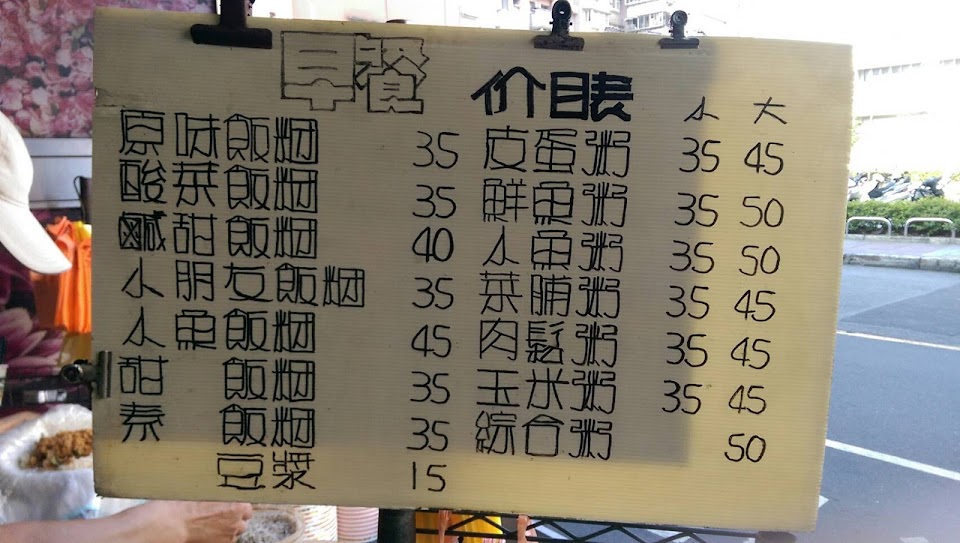 早餐 价目表 小 大
原味飯糰 35 皮蛋粥 35 45
酸菜飯糰 35 鮮魚粥 35 50
鹹甜飯糰 40 小魚粥 35 50
小朋友飯糰 35 菜脯粥 35 45
小魚飯糰 45 肉鬆粥 35 45
甜 飯糰 35 玉米粥 35 45
素 飯糰 35 綜合粥 50
豆漿 15